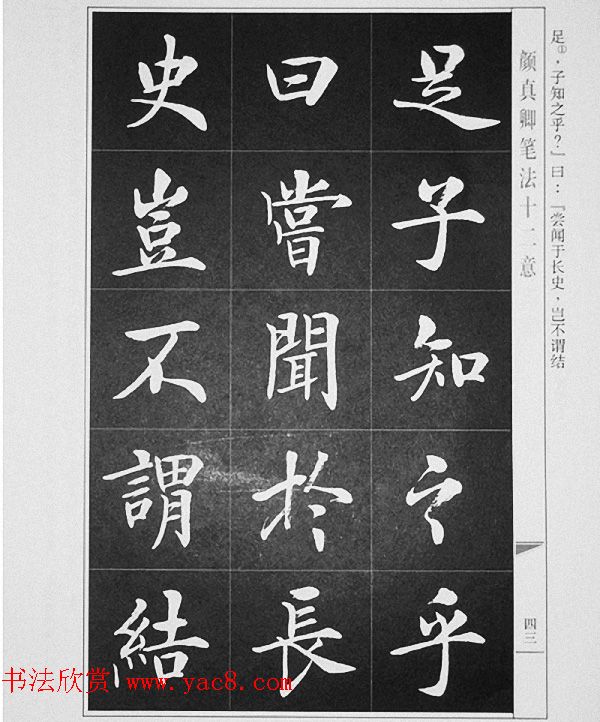 足子知之乎
曰嘗聞於長
史豈不謂結
足①，子知之乎？」曰：「尝闻于长史，岂不谓结
颜真卿笔法十二意
四三
书法欣赏 www.yac8.com